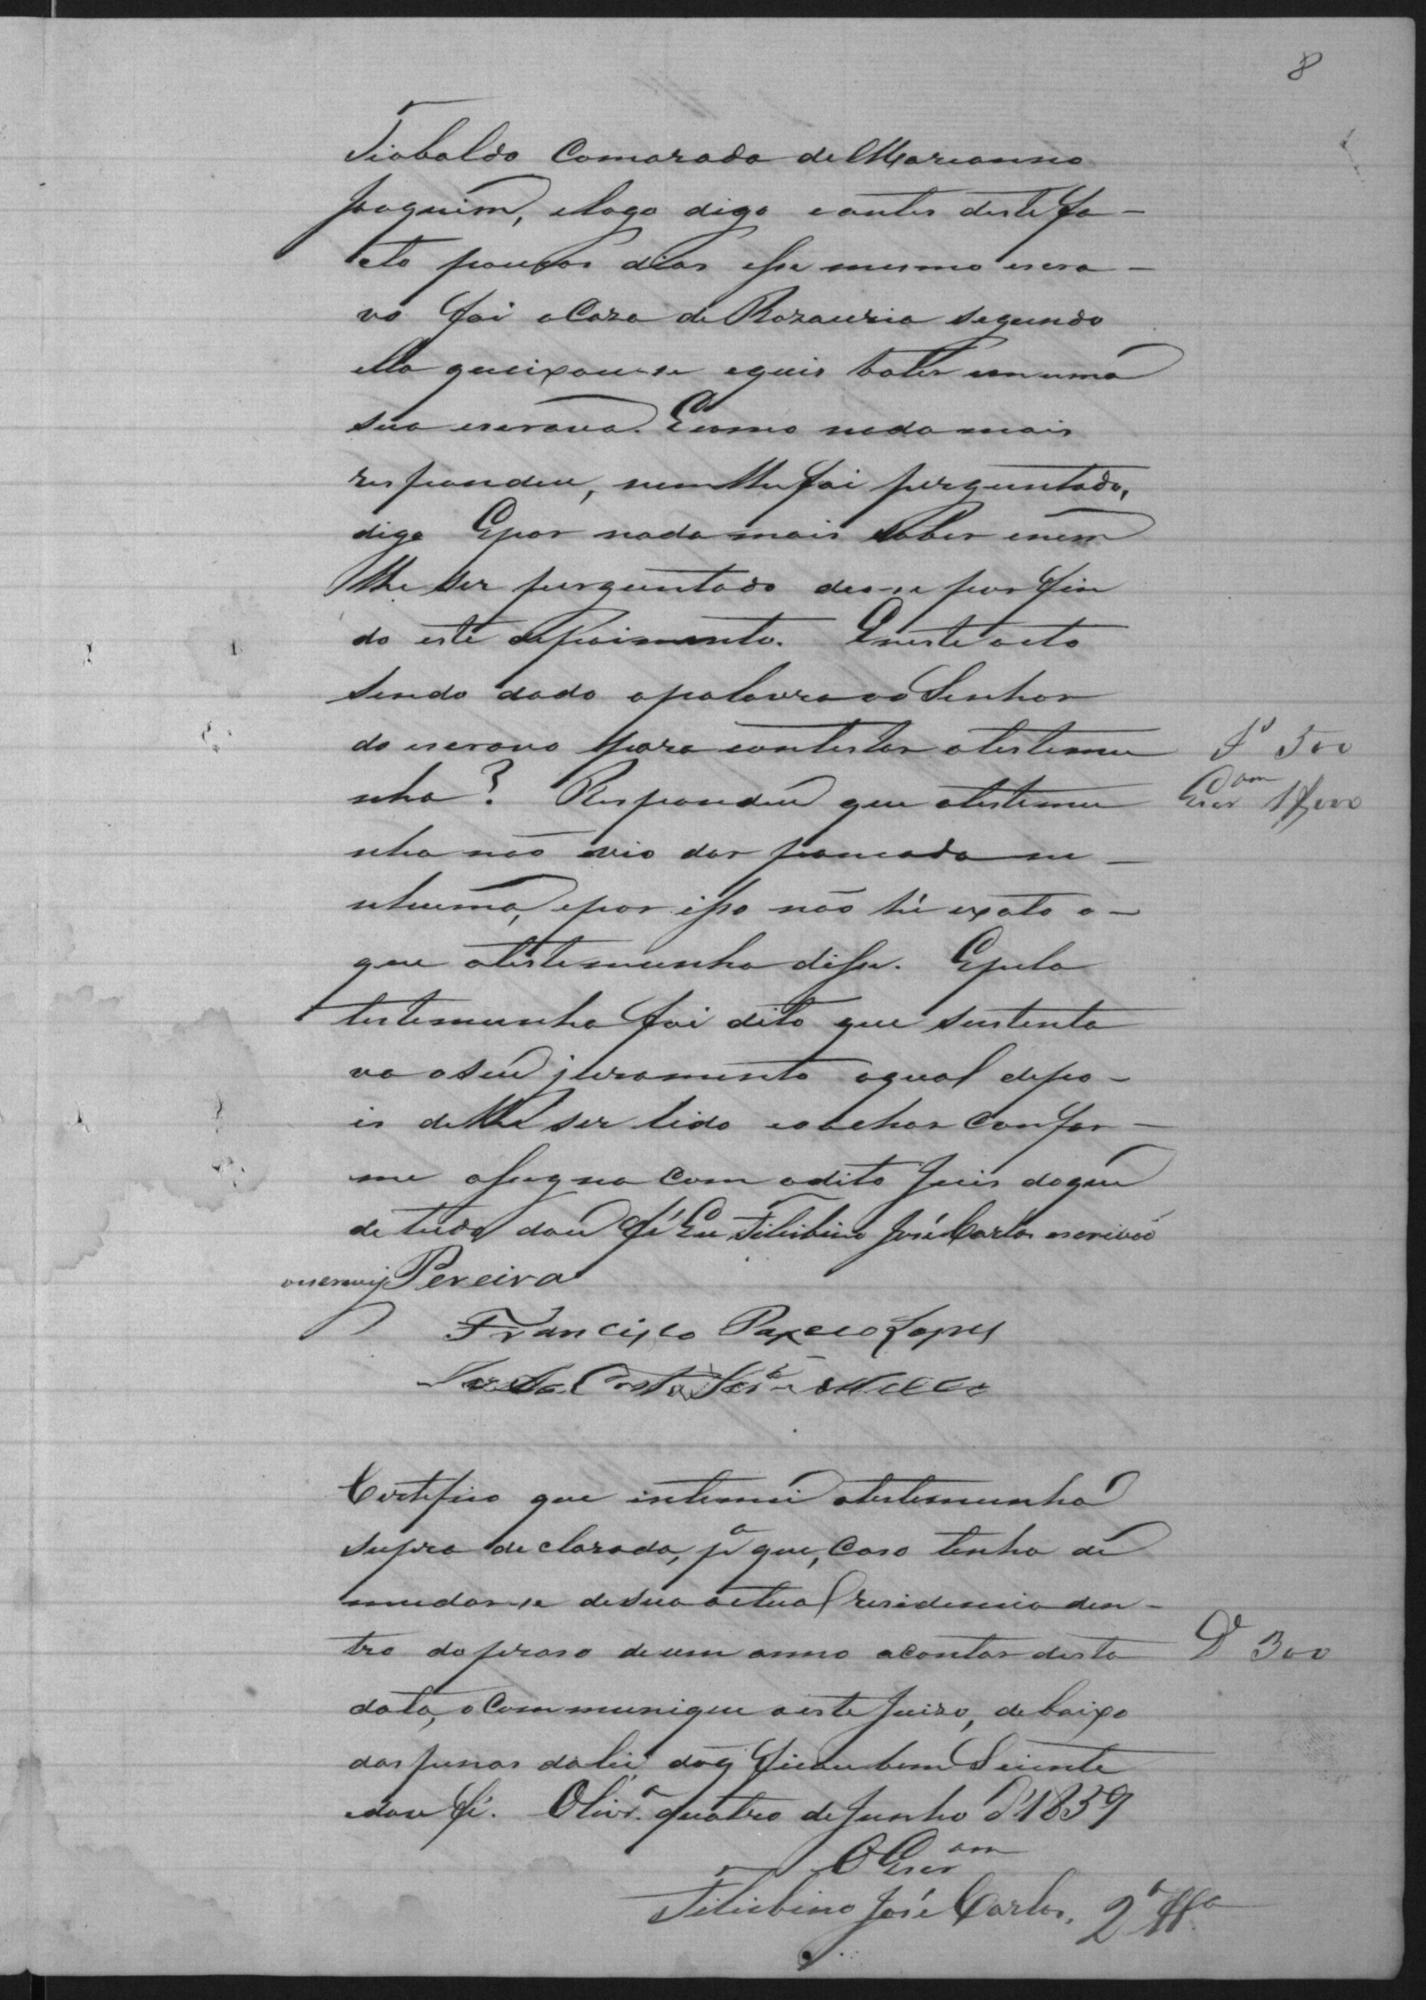 8
Tiobaldo Camarada de Marianno
Joaquim, elogo digo eantes deste fa-
cto poucos dias esse mesmo escra-
vo foi a Caza de Rozauria segundo
ella queixou-se equis bater em uma
sua escrava. Ecomo nada mais
respondeu, nem lhe foi perguntado,
digo Epor nada mais saber enem
lhe ser perguntado deo-se por fin
do este depoimento. Eneste acto
sendo dada apalavra ao Senhor
do escravo para contestar atestemu
nha? Respondeu que atestemu
nha não vio dar pancada ne-
nhuma, epor isso não hé exato o-
que atestemunha disse. Epela
testemunha foi dito que sustenta
va oseu juramento oqual depo-
is de lhe ser lido eoachar confor-
me assigna com odito Juis doque
de tudo dou fé Eu José Carlos escrivão
oescrevy Pereira
Francisco Lopes
Certifico que intimei atestemunha
supra declarada, pª que, caso tenha de
mudar-se desua actual residencia den-
tro do praso de um anno acontar desta
data, o communique aeste Juizo, debaixo
das penas da lei doq ficou bem Sciente
edou fé. Olivrª quatro de Junho d'1859
O Escram
José Carlos. 2ª
Jº 300
Escram 1$000
Dº 300